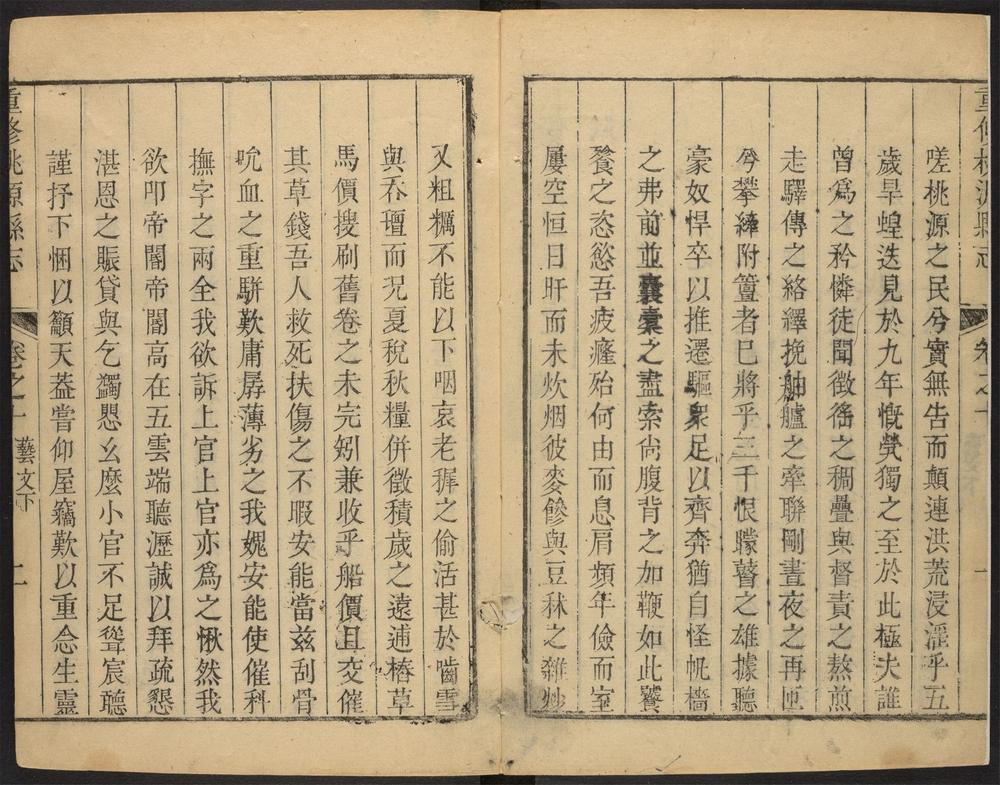 重修桃源縣志
卷之十
一
嗟桃源之民兮實無告而顛連洪荒浸淫乎五
歲旱蝗迭見於九年慨煢獨之至於此極夫誰
曾爲之矜憐徒聞徵徭之稠疊與督責之熬煎
走驛傳之絡繹挽舳艫之牽聯剛晝夜之再匝
兮攀縴附簹者已將乎三千恨矇瞽之雄據聽
豪奴悍卒以推遷驅衆足以齊奔猶自怪帆檣
之弗前並囊橐之盡索尚腹背之加鞭如此饕
餮之恣慾吾疲癃殆何由而息肩頻年儉而室
屢空恒日旰而未炊烟彼麥饘與豆秣之雜炒
又粗糲不能以下咽哀老穉之偷活甚於嚙雪
與吞氊而況夏稅秋糧併徵積歲之遠逋樁草
馬價搜刷舊卷之未完矧兼收乎船價且交催
其草錢吾人救死扶傷之不暇安能當兹刮骨
吮血之重騈歎庸孱薄劣之我媿安能使催科
撫字之兩全我欲訴上官上官亦爲之愀然我
欲叩帝閽帝閽高在五雲端聽瀝誠以拜疏懇
湛恩之賑貸與乞蠲愳幺麼小官不足聳宸聽
謹抒下悃以籲天葢嘗仰屋竊歎以重念生靈
重修桃源縣志
卷之十
藝文下
二